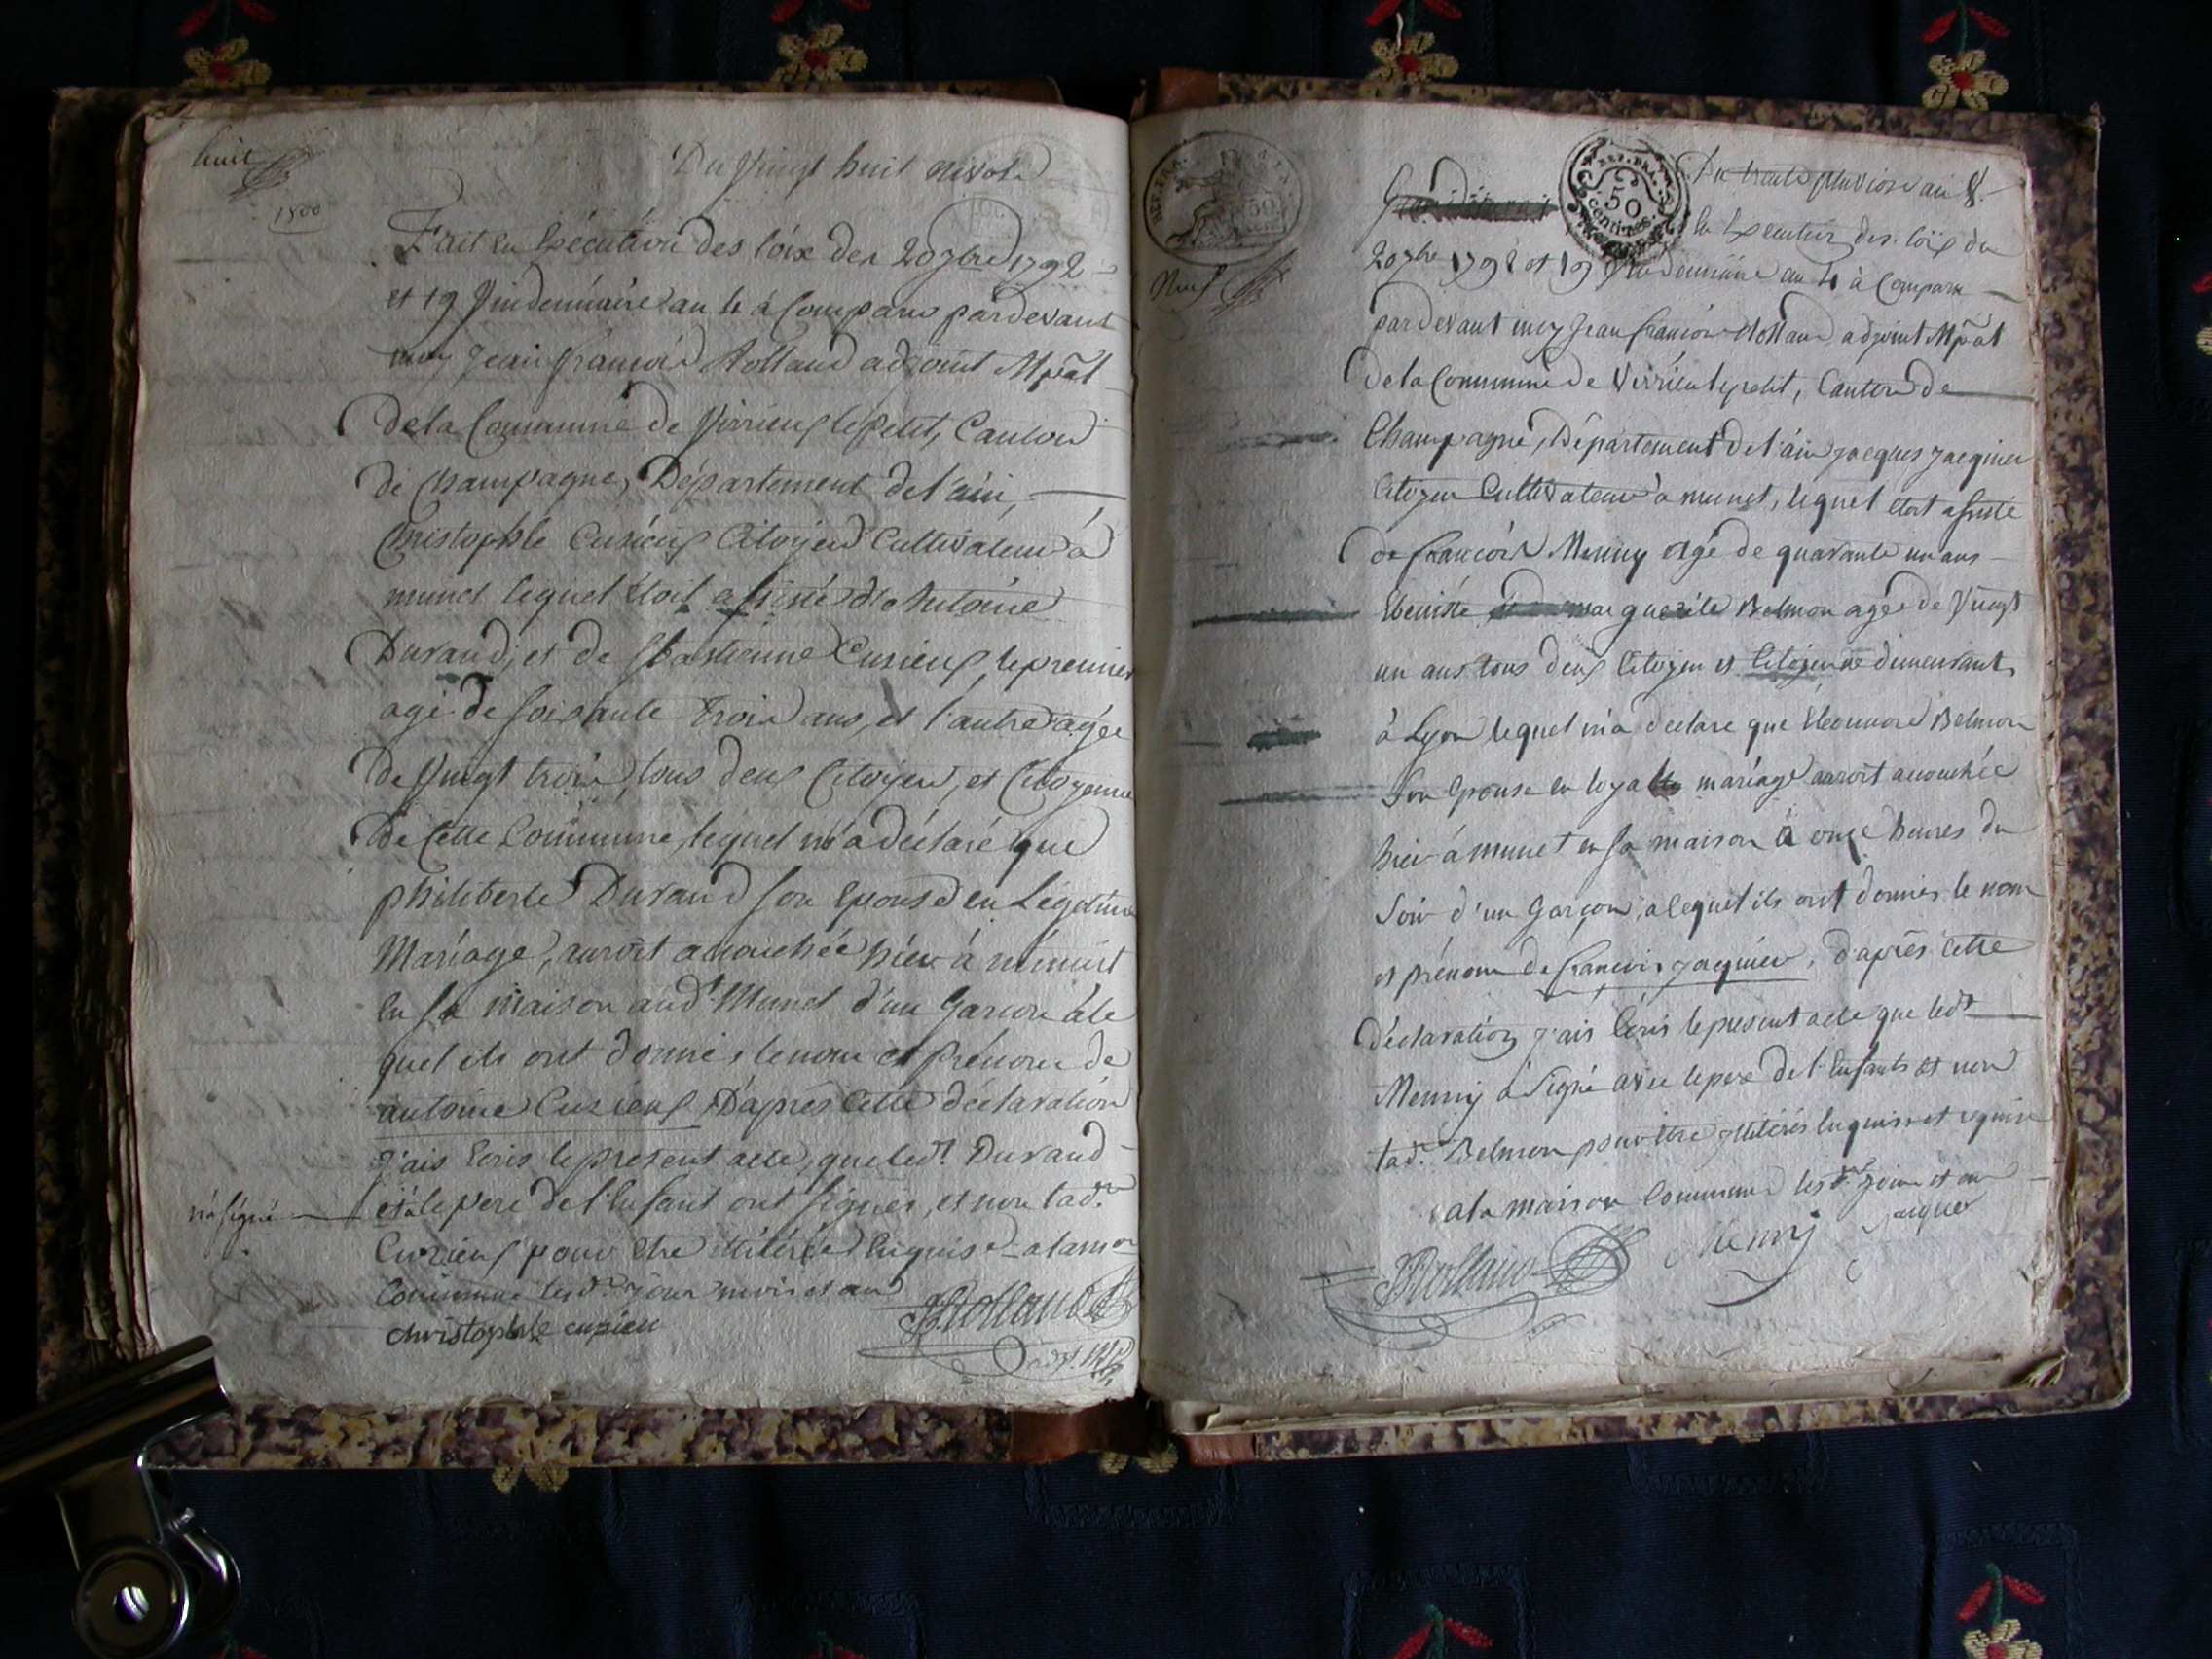 huit
1800
Du Vingt huit nivose
Fait en Exécution des loix des 20 7bre 1792
et 19 Vindemiaire an 4 à Comparu pardevant
moy Jean françois Rolland adjoint Mpāl
de la Commune de Virieux le petit, Canton
de Champagne, Département de l'ain,
Christophle Cuzieux Citoyen Cultivateur à
munet lequel étoit assisté d'Antoine
Durand, et de Cuzieux, le premier
agé de soixante trois ans, et l'autre agée
de Vingt trois, tous deux Citoyen, et Citoyenne
de Cette Commune, lequel m'a déclaré que
philiberte Durand son épouse en Légitime
Mariage, auroit acouchée hier à minuit
en sa maison aud.t Munet d'un Garcon à le
quel ils ont donnés le nom et prénom de
antoine Cuzieux D'après Cette déclaration
J'ais Ecris le présent acte, que led.t Durand
n'a signé
et le pere de l'Enfant ont signés, et non lad.te
Cuzieux pour être illitérée Enquise a la mon
Commune les d.ts jour mois et an
christophle cuzieu
JRolland
adjt. Mp
REP. FRA.
50
centimes
Neuf
Du trente pluviose an 8.
En Execution des loix du
20 7bre 1792 et 19 Vindemiaire an 4 à Comparu
pardevant moy Jean francois Rolland adjoint Mpāl
de la Commune de Virieu le petit, Canton de
Champagne, Département de l'ain jacques jacquier
Citoyen Cultivateur à munet, lequel étoit assisté
de francois Menny agé de quarante un ans
Ebeniste marguerite Belmon agée de Vingt
un ans tous deux Citoyen et Citoyenne demeurant
à Lyon lequel m'a declaré que Eleonnore Belmon
Son Epouse en loyalle mariage auroit acouchée
hier à munet en sa maison à onze heures du
Soir d'un Garçon, a lequel ils ont donnés le nom
et prénom de francois jacquier, d'après Cette
déclaration j'ais Ecris le present acte que led.t
Menny à Signé avec le pere de l'Enfants et non
lad.te Belmon pour être illitérés Enquise et requise
a la maison Commune les d.ts jour et an
JRolland Menny jaiquier